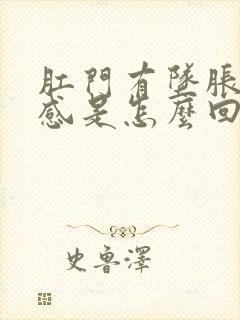 肛門有墜脹
感是怎麼回
史魯澤